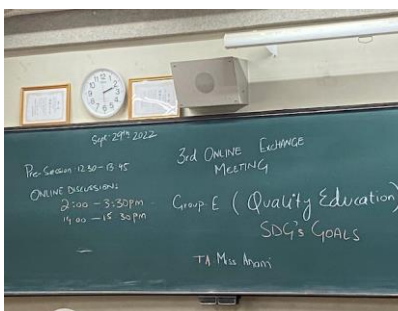 Sept. 29th 2022
Pre-Session 12:30 - 13:45
ONLINE DISCUSSION:
2:00 - 3:30pm
14:00 - 15:30pm
3rd ONLINE EXCHANGE
MEETING
Group-E (Quality Education)
SDG's GOALS
TA: Miss